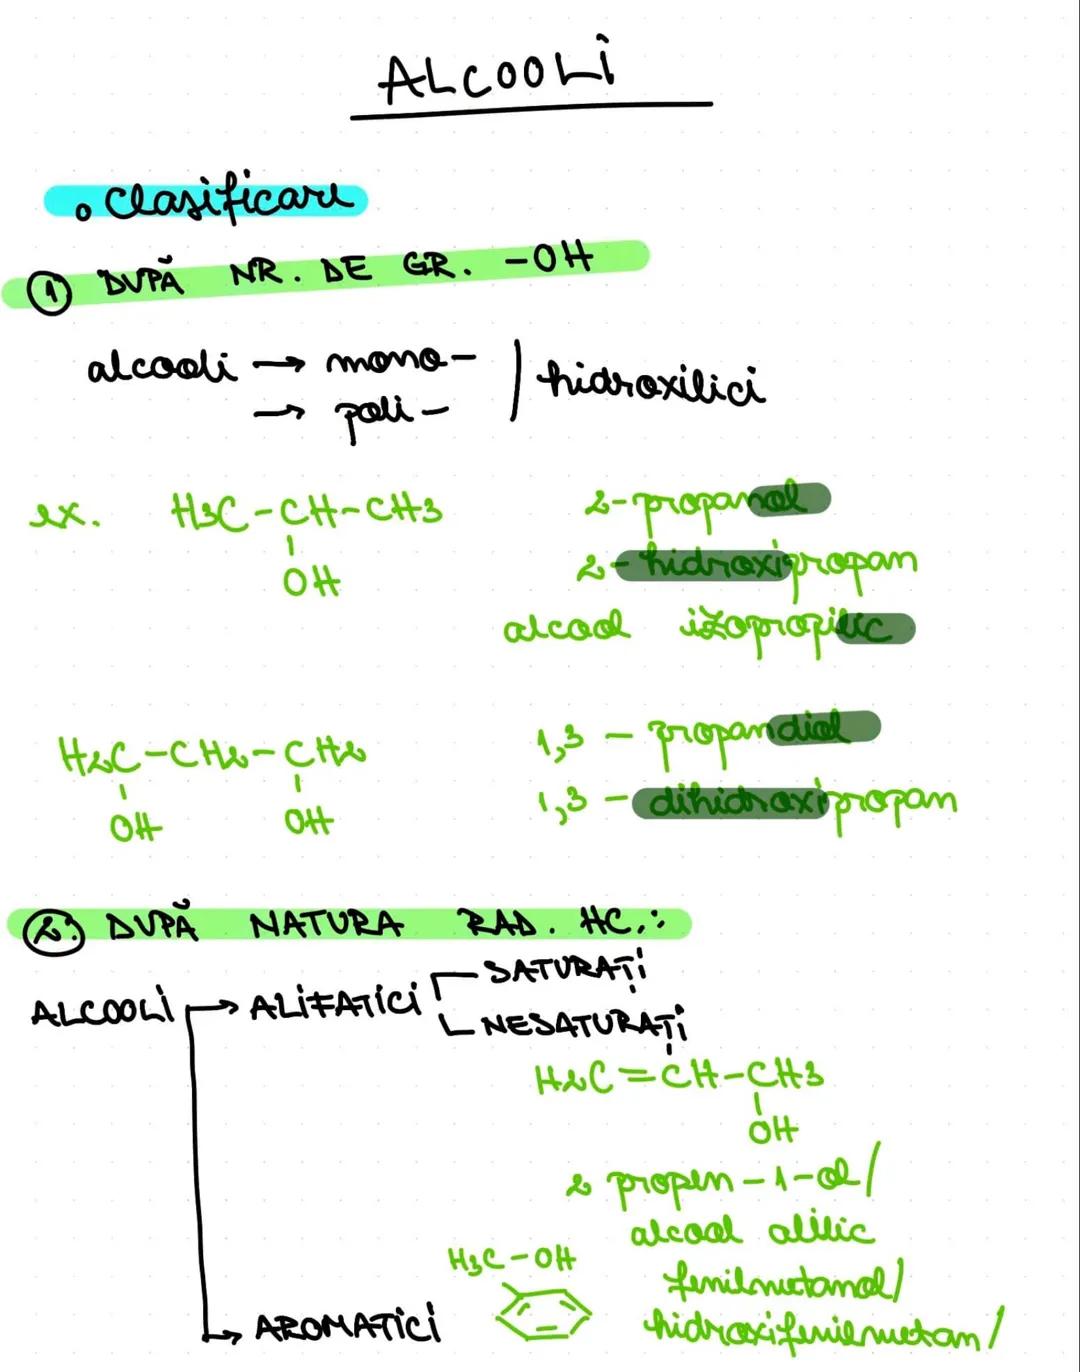 ALCOOLI
• Clasificare
① DUPĂ NR. DE GR. -OH
alcooli → mono- / hidroxilici
→ poli-
ex. H3C-CH-CH3
OH
2-propanol
2-hidroxipropan
alcool izopropilic
H2C-CH2-CH2
OH OH
1,3 - propandiol
1,3 - dihidroxipropan
②. DUPĂ NATURA RAD. HC.:
ALCOOLI → ALIFATICI
SATURAȚI
NESATURAȚI
H2C=CH-CH3
OH
2 propen-1-ol/
alcool alilic
→ AROMATICI
H3C-OH
fenilmetanol/
hidroxifenilmetan/